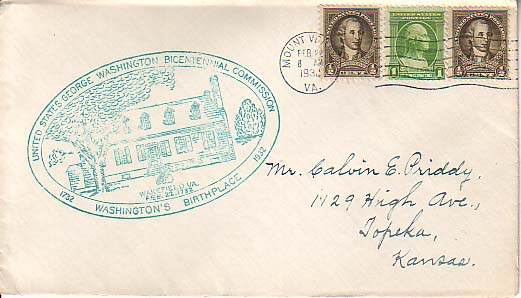 UNITED STATES GEORGE WASHINGTON BICENTENNIAL COMMISSION
1732
1932
WAKEFIELD, VA.
FEB. 22, 1732
WASHINGTON'S BIRTHPLACE
MOUNT
FEB
8 AM
1932
VA.
UNITED STATES POSTAGE
1
1
Mr. Calvin E. Priddy,
1429 High Ave.,
Topeka,
Kansas.